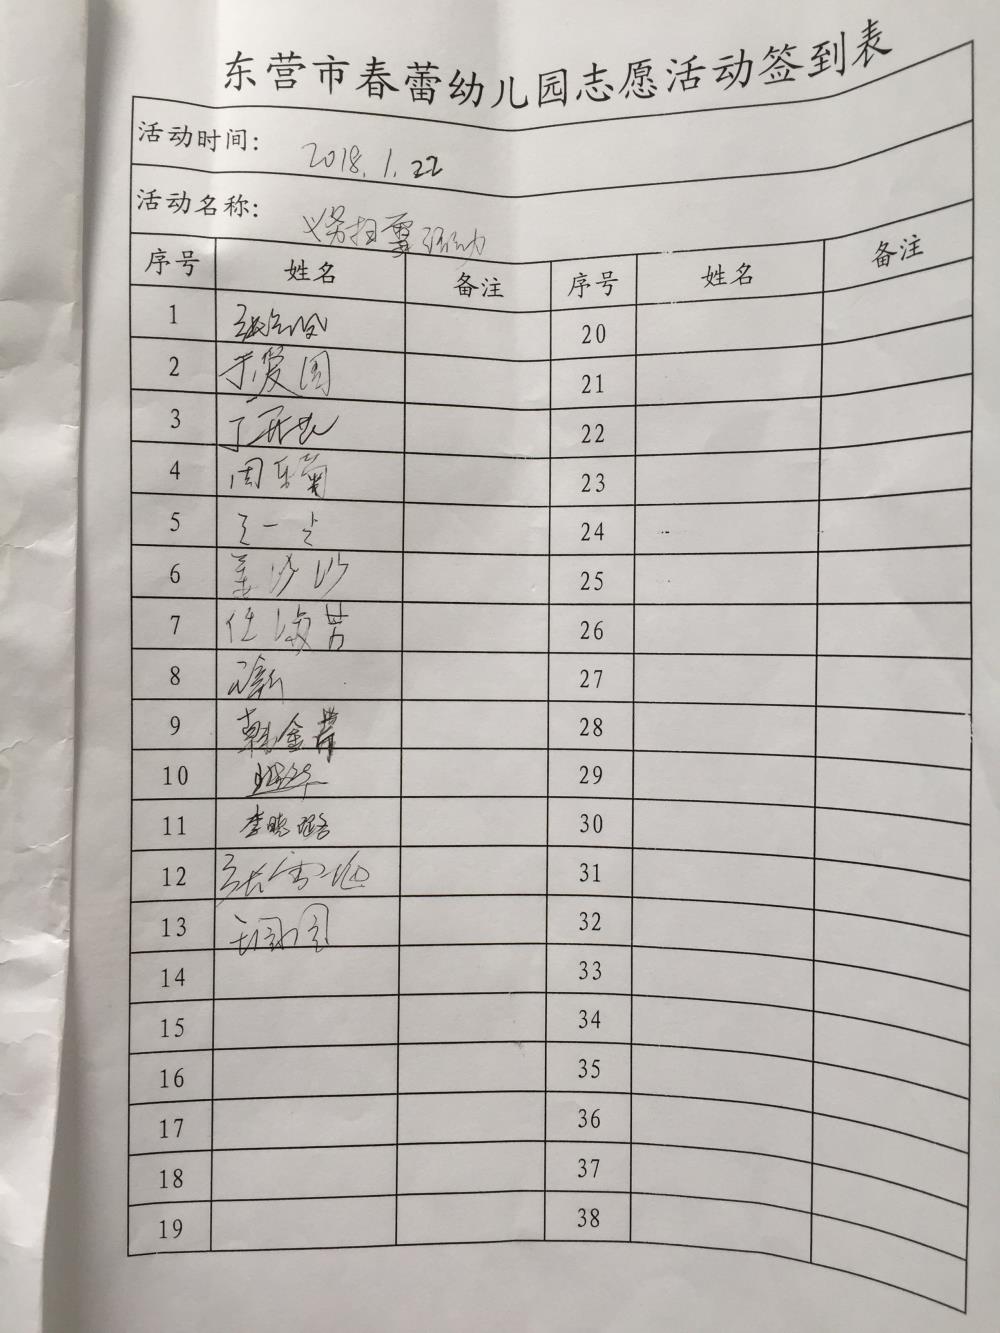 东营市春蕾幼儿园志愿活动签到表
活动时间: 2018.1.22
活动名称: 义务扫雪活动
序号 姓名 备注 序号 姓名 备注
1 20
2 于爱国 21
3 22
4 周乐菊 23
5 24
6 姜沙沙 25
7 任海芳 26
8 27
9 韩金 28
10 29
11 李晓璐 30
12 张雪 31
13 32
14 33
15 34
16 35
17 36
18 37
19 38